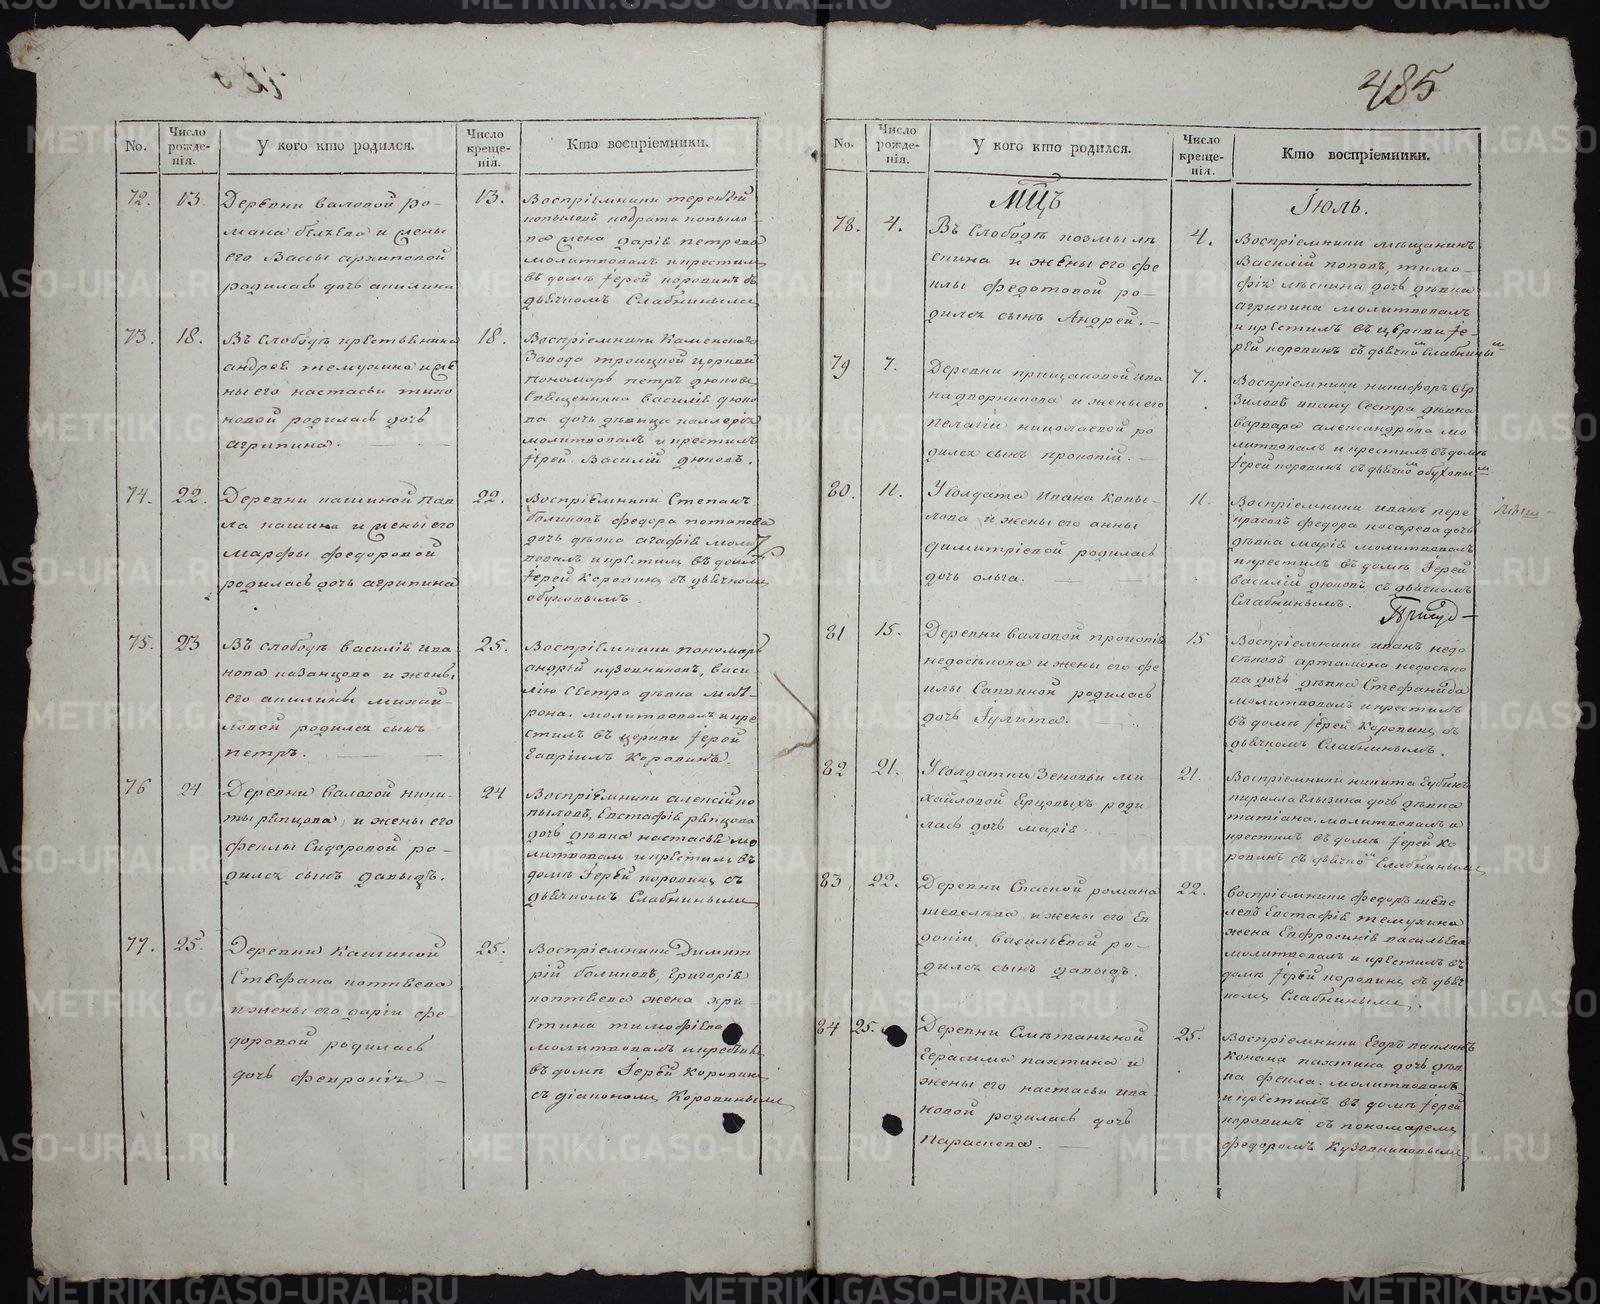 485
No.
Число рожденія.
У кого кто родился.
Число крещенія.
Кто воспріемники.
72.
13.
Деревни валовой ро-
мана бѣлѣева и жены
его Вассы архиповой
родилась дочь акилина
13.
Воспріемники терентій
копыловъ кодрата копыло-
ва жена дарія петрова
молитвовалъ и крестилъ
въ домѣ Іерей коровинъ съ
дьячкомъ Слабнинымъ
73.
18.
Въ слободѣ крестьянина
андрея темухина и же
ны его настасьи тихо
новой родилась дочь
агрипина.
18.
Воспріемники Каменскаго
Завода троицкой церкви
пономарь петръ дюковъ
Священника василія дюко
ва дочь дѣвица
молитвовалъ и крестилъ
Іерей Василій дюковъ.
74.
22.
Деревни кашиной пав
ла кашина и жены его
марфы федоровой
родилась дочь агрипина
22.
Воспріемники Степанъ
балиновъ федора потапова
дочь дѣвка агафія моли
вовалъ и крестилъ въ домѣ
Іерей Коровинъ съ дьячкомъ
обуховымъ.
75.
23
Въ слободѣ василія ива
нова казанцова и жены
его акилины михай-
ловой родился сынъ
петръ.
25.
Воспріемники пономарь
андрей кузовниковъ, васи
лію Сестра дѣвка мат-
рона. молитвовалъ и кре
стилъ въ церкви Іерей
Гавріилъ Коровинъ.
76
24
Деревни валовой ники-
ты рѣпцова и жены его
феклы Сидоровой ро-
дился сынъ давыдъ.
24
Воспріемники алексій ко
пыловъ, Евстафія рѣпцова
дочь дѣвка настасья мо
литвовалъ и крестилъ въ
домѣ Іерей коровинъ съ
дьячкомъ Слабнинымъ
77.
25.
Деревни Кашиной
Стефана коптѣева
и жены его даріи фе-
доровой родилась
дочь февронія
25.
Воспріемники Димит
рій балиновъ, Григорія
коптѣева жена хри-
стина тимофіева
молитвовалъ и крестилъ
въ домѣ Іерей Коровинъ
съ діакономъ Коровинымъ
No.
Число рожденія.
У кого кто родился.
Число крещенія.
Кто воспріемники.
Мцъ
Іюль.
78.
4.
Въ Слободѣ козмы мѣ
скина и жены его фе
клы федотовой ро-
дился сынъ Андрей.
4.
Воспріемники мѣщанинъ
Василій поповъ, тимо-
фія мѣскина дочь дѣвка
агрипина молитвовалъ
и крестилъ въ церкви Іе-
рей коровинъ съ дьячкомъ Слабнинымъ
79
7.
Деревни прищановой ива
на дворникова и жены его
пелагіи николаевой ро
дился сынъ прокопій.
7.
Воспріемники никифоръ бер
зиловъ ивану Сестра дѣвка
варвара александрова мо
литвовалъ и крестилъ въ домѣ
Іерей коровинъ съ дьячкомъ обуховымъ
80
11.
У солдата ивана Копы-
лова и жены его анны
димитріевой родилась
дочь ольга.
11.
Воспріемники иванъ пере
красовъ федора косарева дочь
дѣвка марія молитвовалъ
и крестилъ въ домѣ Іерей
василій дюковъ съ дьячкомъ
Слабнинымъ.
81
15.
Деревни валовой прокопія
недосѣкова и жены его фе
клы Саввиной родилась
дочь Іулита.
15
Воспріемники иванъ недо
сѣковъ артамона недосѣко
ва дочь дѣвка Стефанида
молитвовалъ и крестилъ
въ домѣ Іерей Коровинъ съ
дьячкомъ Слабнинымъ.
82
21.
У солдатки Зеновьи ми
хайловой Ерцовыхъ роди
лась дочь марія.
21.
Воспріемники никита Губинъ
кирилла Елызина дочь дѣвка
татіана. молитвовалъ и
крестилъ въ домѣ Іерей Ко
ровинъ съ дьячкомъ Слабнинымъ
83
22.
Деревни Спаской романа
шевелѣва, и жены его Ев
докіи васильевой ро-
дился сынъ давыдъ.
22.
Воспріемники федоръ шеве
левъ Евстафія темухина
жена Евфросинія васильева
молитвовалъ и крестилъ въ
домѣ Іерей коровинъ съ дьяч
комъ Слабнинымъ.
84
25.
Деревни Смѣтаниной
Герасима пахтина и
жены его настасьи ива
новой родилась дочь
параскева.
25.
Воспріемники Егоръ павлинъ
Конана пахтина дочь дѣв
ка фекла. молитвовалъ
и крестилъ въ домѣ Іерей
коровинъ съ пономаремъ
федоромъ Кузовниковымъ
METRIKI.GASO-URAL.RU